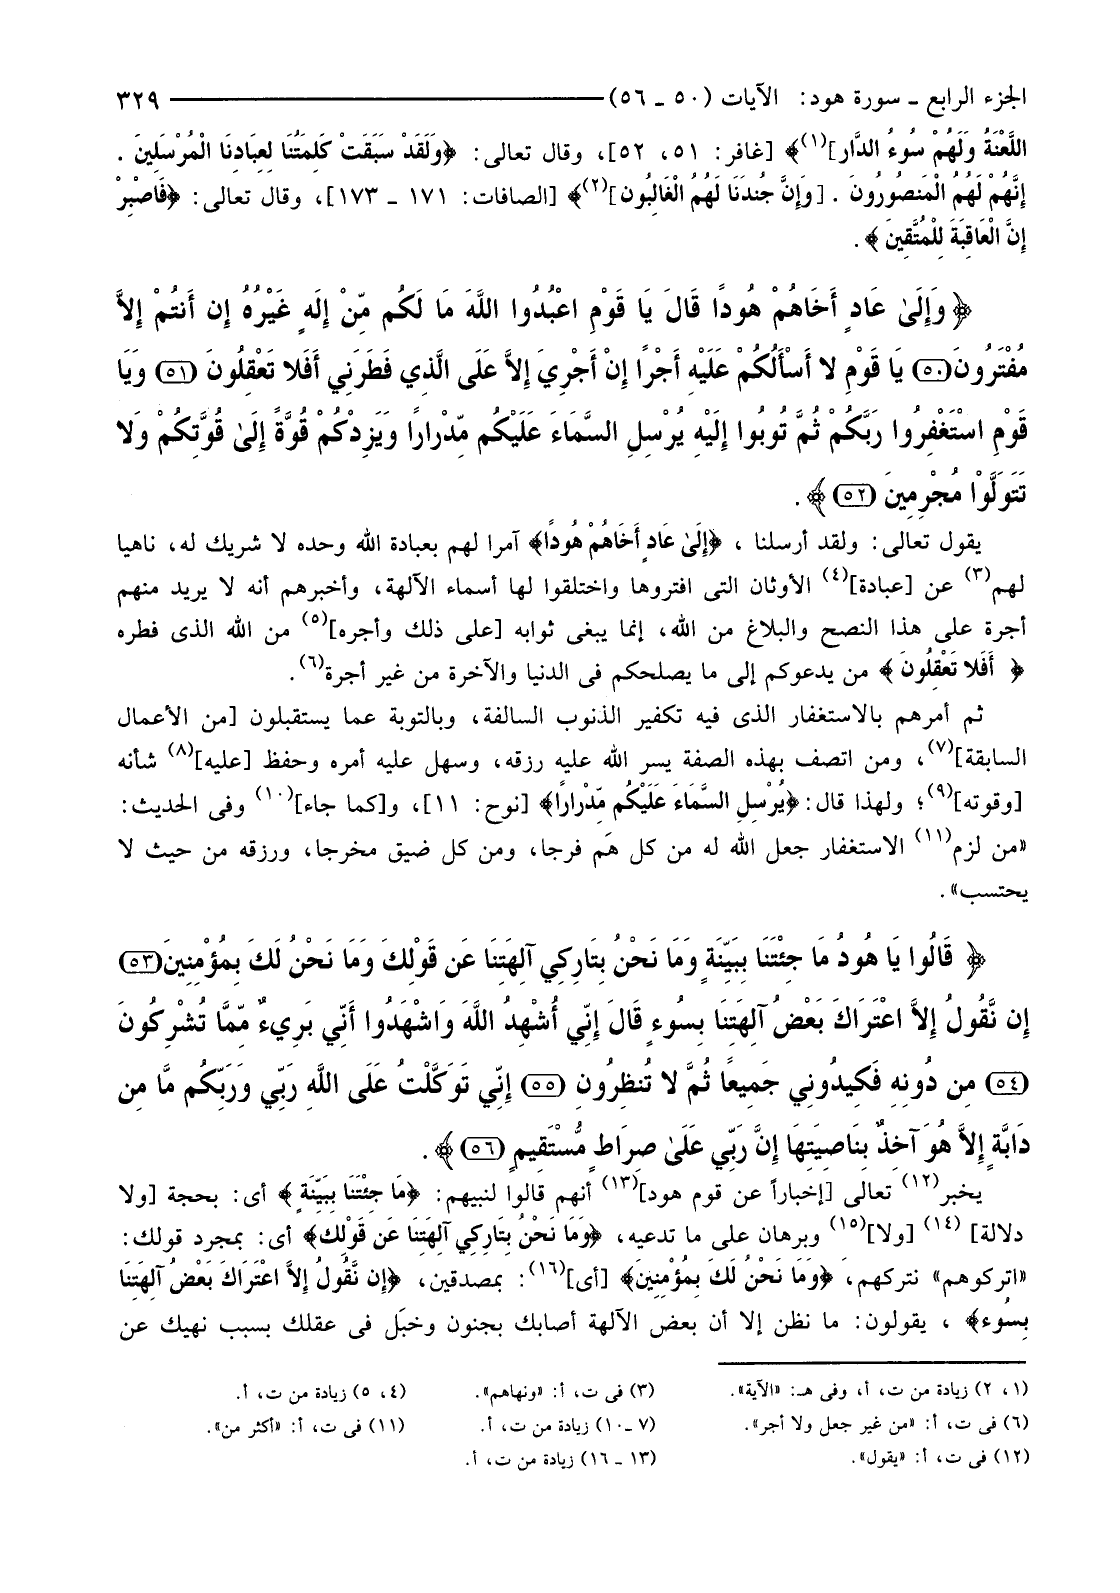 الجزء الرابع ـ سورة هود: الآيات (٥٠ ـ ٥٦) ٣٢٩
اللَّعْنَةُ وَلَهُمْ سُوءُ الدَّارِ](١)﴾ [غافر: ٥١، ٥٢]، وقال تعالى: ﴿وَلَقَدْ سَبَقَتْ كَلِمَتُنَا لِعِبَادِنَا الْمُرْسَلِينَ .
إِنَّهُمْ لَهُمُ الْمَنصُورُونَ . [وَإِنَّ جُندَنَا لَهُمُ الْغَالِبُون](٢)﴾ [الصافات: ١٧١ ـ ١٧٣]، وقال تعالى: ﴿فَاصْبِرْ
إِنَّ الْعَاقِبَةَ لِلْمُتَّقِينَ﴾.
﴿وَإِلَىٰ عَادٍ أَخَاهُمْ هُودًا قَالَ يَا قَوْمِ اعْبُدُوا اللَّهَ مَا لَكُم مِّنْ إِلَهٍ غَيْرُهُ إِن أَنتُمْ إِلاَّ
مُفْتَرُونَ (٥٠) يَا قَوْمِ لا أَسْأَلُكُمْ عَلَيْهِ أَجْرًا إِنْ أَجْرِيَ إِلاَّ عَلَى الَّذِي فَطَرَنِي أَفَلا تَعْقِلُونَ (٥١) وَيَا
قَوْمِ اسْتَغْفِرُوا رَبَّكُمْ ثُمَّ تُوبُوا إِلَيْهِ يُرْسِلِ السَّمَاءَ عَلَيْكُم مِّدْرَارًا وَيَزِدْكُمْ قُوَّةً إِلَىٰ قُوَّتِكُمْ وَلا
تَتَوَلَّوْا مُجْرِمِينَ (٥٢)﴾.
يقول تعالى: ولقد أرسلنا ، ﴿إِلَىٰ عَادٍ أَخَاهُمْ هُودًا﴾ آمرا لهم بعبادة الله وحده لا شريك له، ناهيا
لهم(٣) عن [عبادة](٤) الأوثان التى افتروها واختلقوا لها أسماء الآلهة، وأخبرهم أنه لا يريد منهم
أجرة على هذا النصح والبلاغ من الله، إنما يبغى ثوابه [على ذلك وأجره](٥) من الله الذى فطره
﴿أَفَلا تَعْقِلُونَ﴾ من يدعوكم إلى ما يصلحكم فى الدنيا والآخرة من غير أجرة(٦).
ثم أمرهم بالاستغفار الذى فيه تكفير الذنوب السالفة، وبالتوبة عما يستقبلون [من الأعمال
السابقة](٧)، ومن اتصف بهذه الصفة يسر الله عليه رزقه، وسهل عليه أمره وحفظ [عليه](٨) شأنه
[وقوته](٩)؛ ولهذا قال: ﴿يُرْسِلِ السَّمَاءَ عَلَيْكُم مِّدْرَارًا﴾ [نوح: ١١]، و[كما جاء](١٠) وفى الحديث:
«من لزم(١١) الاستغفار جعل الله له من كل هَم فرجا، ومن كل ضيق مخرجا، ورزقه من حيث لا
يحتسب».
﴿قَالُوا يَا هُودُ مَا جِئْتَنَا بِبَيِّنَةٍ وَمَا نَحْنُ بِتَارِكِي آلِهَتِنَا عَن قَوْلِكَ وَمَا نَحْنُ لَكَ بِمُؤْمِنِينَ (٥٣)
إِن نَّقُولُ إِلاَّ اعْتَرَاكَ بَعْضُ آلِهَتِنَا بِسُوءٍ قَالَ إِنِّي أُشْهِدُ اللَّهَ وَاشْهَدُوا أَنِّي بَرِيءٌ مِّمَّا تُشْرِكُونَ
(٥٤) مِن دُونِهِ فَكِيدُونِي جَمِيعًا ثُمَّ لا تُنظِرُونِ (٥٥) إِنِّي تَوَكَّلْتُ عَلَى اللَّهِ رَبِّي وَرَبِّكُم مَّا مِن
دَابَّةٍ إِلاَّ هُوَ آخِذٌ بِنَاصِيَتِهَا إِنَّ رَبِّي عَلَىٰ صِرَاطٍ مُّسْتَقِيمٍ (٥٦)﴾.
يخبر(١٢) تعالى [إخباراً عن قوم هود](١٣) أنهم قالوا لنبيهم: ﴿مَا جِئْتَنَا بِبَيِّنَةٍ﴾ أى: بحجة [ولا
دلالة] (١٤) [ولا](١٥) وبرهان على ما تدعيه، ﴿وَمَا نَحْنُ بِتَارِكِي آلِهَتِنَا عَن قَوْلِك﴾ أى: بمجرد قولك:
«اتركوهم» نتركهم، ﴿وَمَا نَحْنُ لَكَ بِمُؤْمِنِينَ﴾ [أى](١٦): بمصدقين، ﴿إِن نَّقُولُ إِلاَّ اعْتَرَاكَ بَعْضُ آلِهَتِنَا
بِسُوء﴾ ، يقولون: ما نظن إلا أن بعض الآلهة أصابك بجنون وخبَل فى عقلك بسبب نهيك عن
(١، ٢) زيادة من ت، أ، وفى هـ: «الآية». (٣) فى ت، أ: «ونهاهم». (٤، ٥) زيادة من ت، أ.
(٦) فى ت، أ: «من غير جعل ولا أجر». (٧ ـ ١٠) زيادة من ت، أ. (١١) فى ت، أ: «أكثر من».
(١٢) فى ت، أ: «يقول». (١٣ ـ ١٦) زيادة من ت، أ.